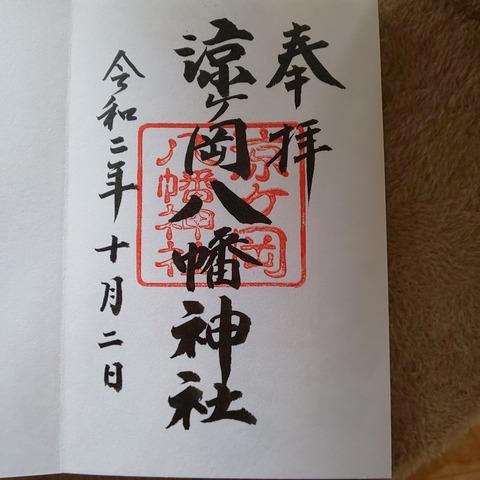 奉拝
涼ヶ岡八幡神社
涼ヶ岡
八幡神社
令和二年十月二日